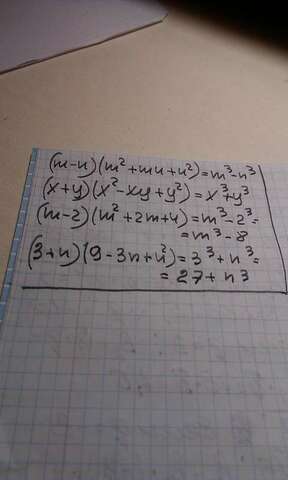 (m-n)(m²+mn+n²)=m³-n³
(x+y)(x²-xy+y²)=x³+y³
(m-2)(m²+2m+4)=m³-2³=
=m³-8
(3+n)(9-3n+n²)=3³+n³=
=27+n³